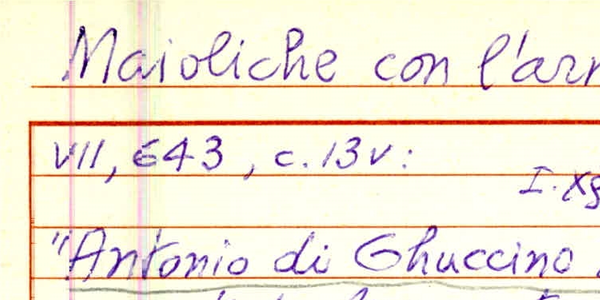 Maioliche con l'arr
VII, 643, c. 13v:
I.
"Antonio di Ghuccino